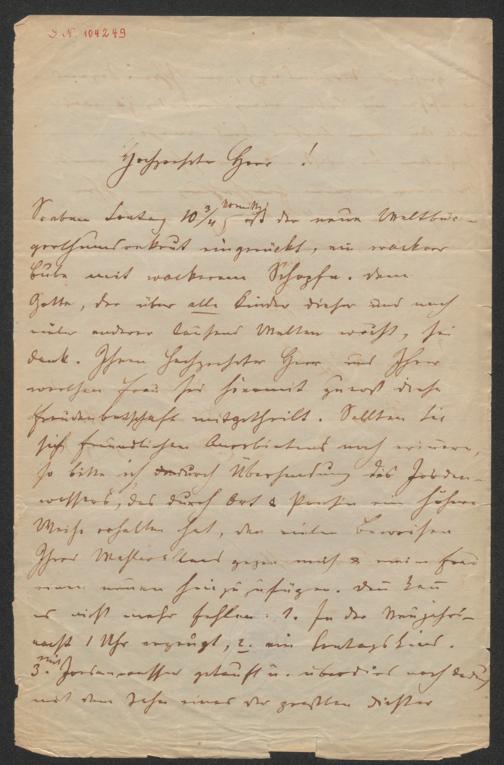 I. N. 104249
Hochgeehrter Herr !
Soeben Sontag 10 3/4 Vormittg ist der neue Weltbür-
gerthumsrekrut eingerückt, ein wackerer
Bube mit wackerem Schopfe. Dem
Gotte, der über alle Kinder dieser und noch
vieler anderer tausend Welten wacht, sei
Dank. Ihnen hochgeehrter Herr und Ihrer
werthen Frau sei hiermit zuerst diese
Freudenbotschaft mitgetheilt. Sollten Sie
sich freundlichen Anerbietens noch erinnern,
so bitte ich durch Übersendung des Jordan-
wassers, das durch Ort & Person eine höhere
Weihe erhalten hat, den vielen Beweisen
Ihres Wohlwollens gegen mich & meine Frau
einen neuen hinzuzufügen. Dann kann
es nicht mehr fehlen: 1. In der Neujahrs-
nacht 1 Uhr erzeugt, 2. ein Sontagskind.
3. mit Jordanwasser getauft u. überdies noch dazu
mit dem Sohn eines der größten Dichter